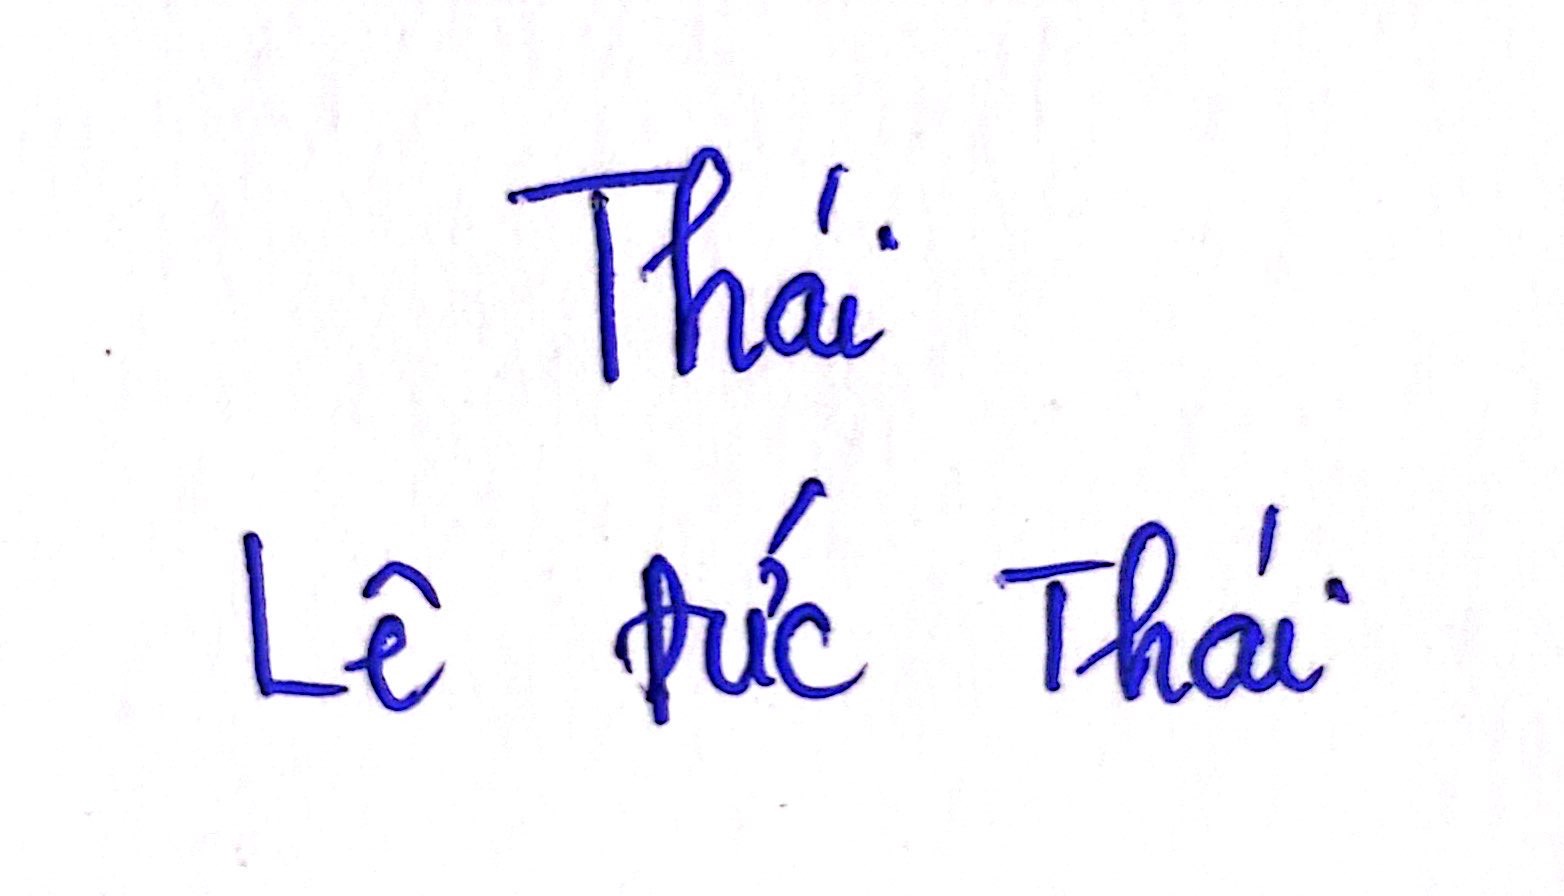 Thái
Lê Đức Thái